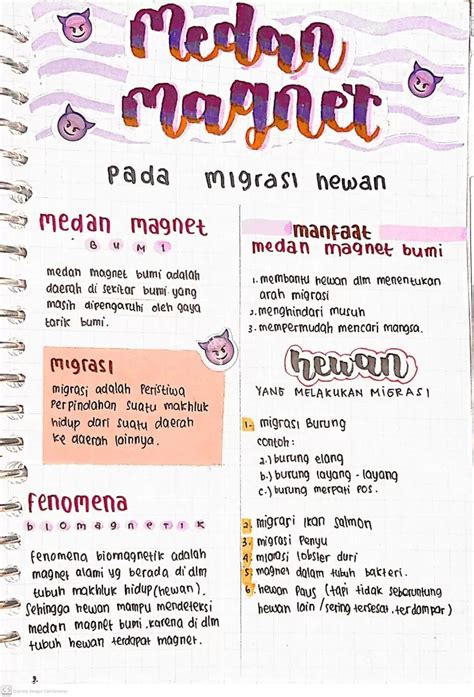 medan
magnet
pada migrasi hewan
medan magnet
BUMI
medan magnet bumi adalah
daerah di sekitar bumi yang
masih dipengaruhi oleh gaya
tarik bumi.
migrasi
migrasi adalah Peristiwa
Perpindahan suatu makhluk
hidup dari suatu daerah
ke daerah lainnya.
Fenomena
biomagnetik
Fenomena biomagnetik adalah
magnet alami yg berada di dlm
tubuh makhluk hidup (hewan).
Sehingga hewan mampu mendeteksi
medan magnet bumi. karena di dlm
tubuh hewan terdapat magnet.
manfaat
medan magnet bumi
1. membantu hewan dlm menentukan
arah migrasi
2. menghindari musuh
3. mempermudah mencari mangsa.
hewan
YANG MELAKUKAN MIGRASI
1. migrasi Burung
contoh:
a.) burung elang
b.) burung layang - layang
c.) burung merpati pos.
2. migrasi Ikan Salmon
3. migrasi Penyu
4. migrasi lobster duri
5. magnet dalam tubuh bakteri.
6. hewan Paus (tapi tidak seberuntung
hewan lain / sering tersesat. terdampar)